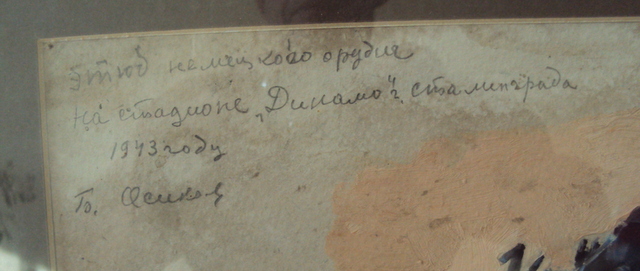 этюд немецкого орудия
на стадионе „Динамо" г. Сталинграда
1943 году
Б. Осиков